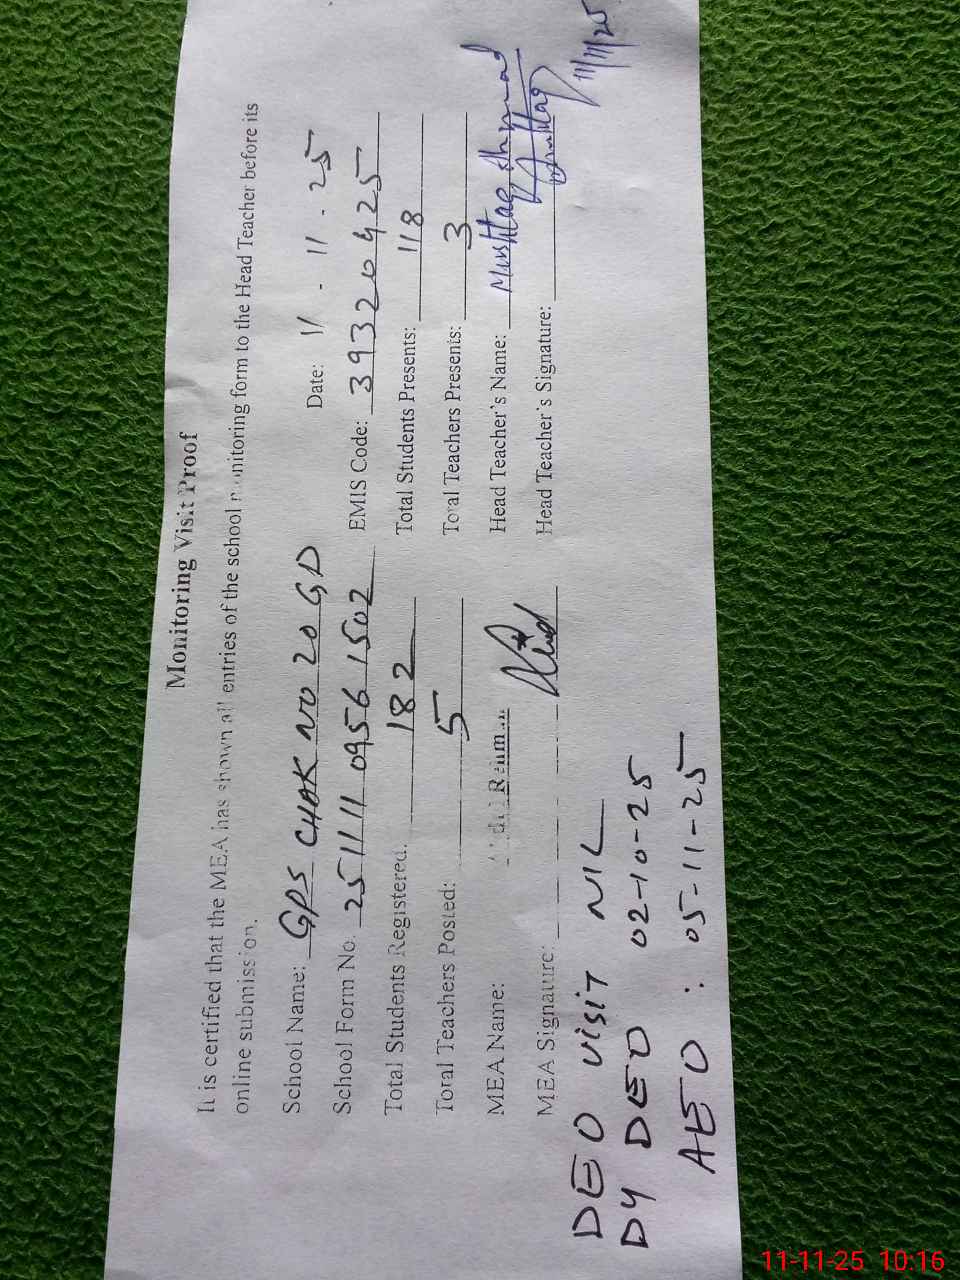 Monitoring Visit Proof
It is certified that the MEA has shown all entries of the school monitoring form to the Head Teacher before its
online submission.
Date: 11 - 11 - 25
School Name: GPS CHAK NO 20 GD
School Form No. 25 11 11 0956 1502 EMIS Code: 39320425
Total Students Registered: 182 Total Students Presents: 118
Total Teachers Posted: 5 Total Teachers Presents: 3
MEA Name: Head Teacher's Name: Mushtaq Ahmad
MEA Signature: Head Teacher's Signature: Mushtaq
11/11/25
DEO visit NIL
DY DEO 02-10-25
AEO : 05-11-25
11-11-25 10:16